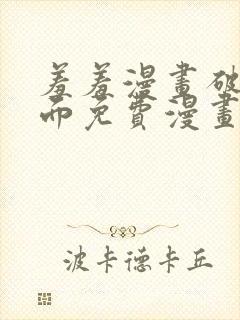 羞羞漫畫破
而免費漫畫
波卡德卡丘